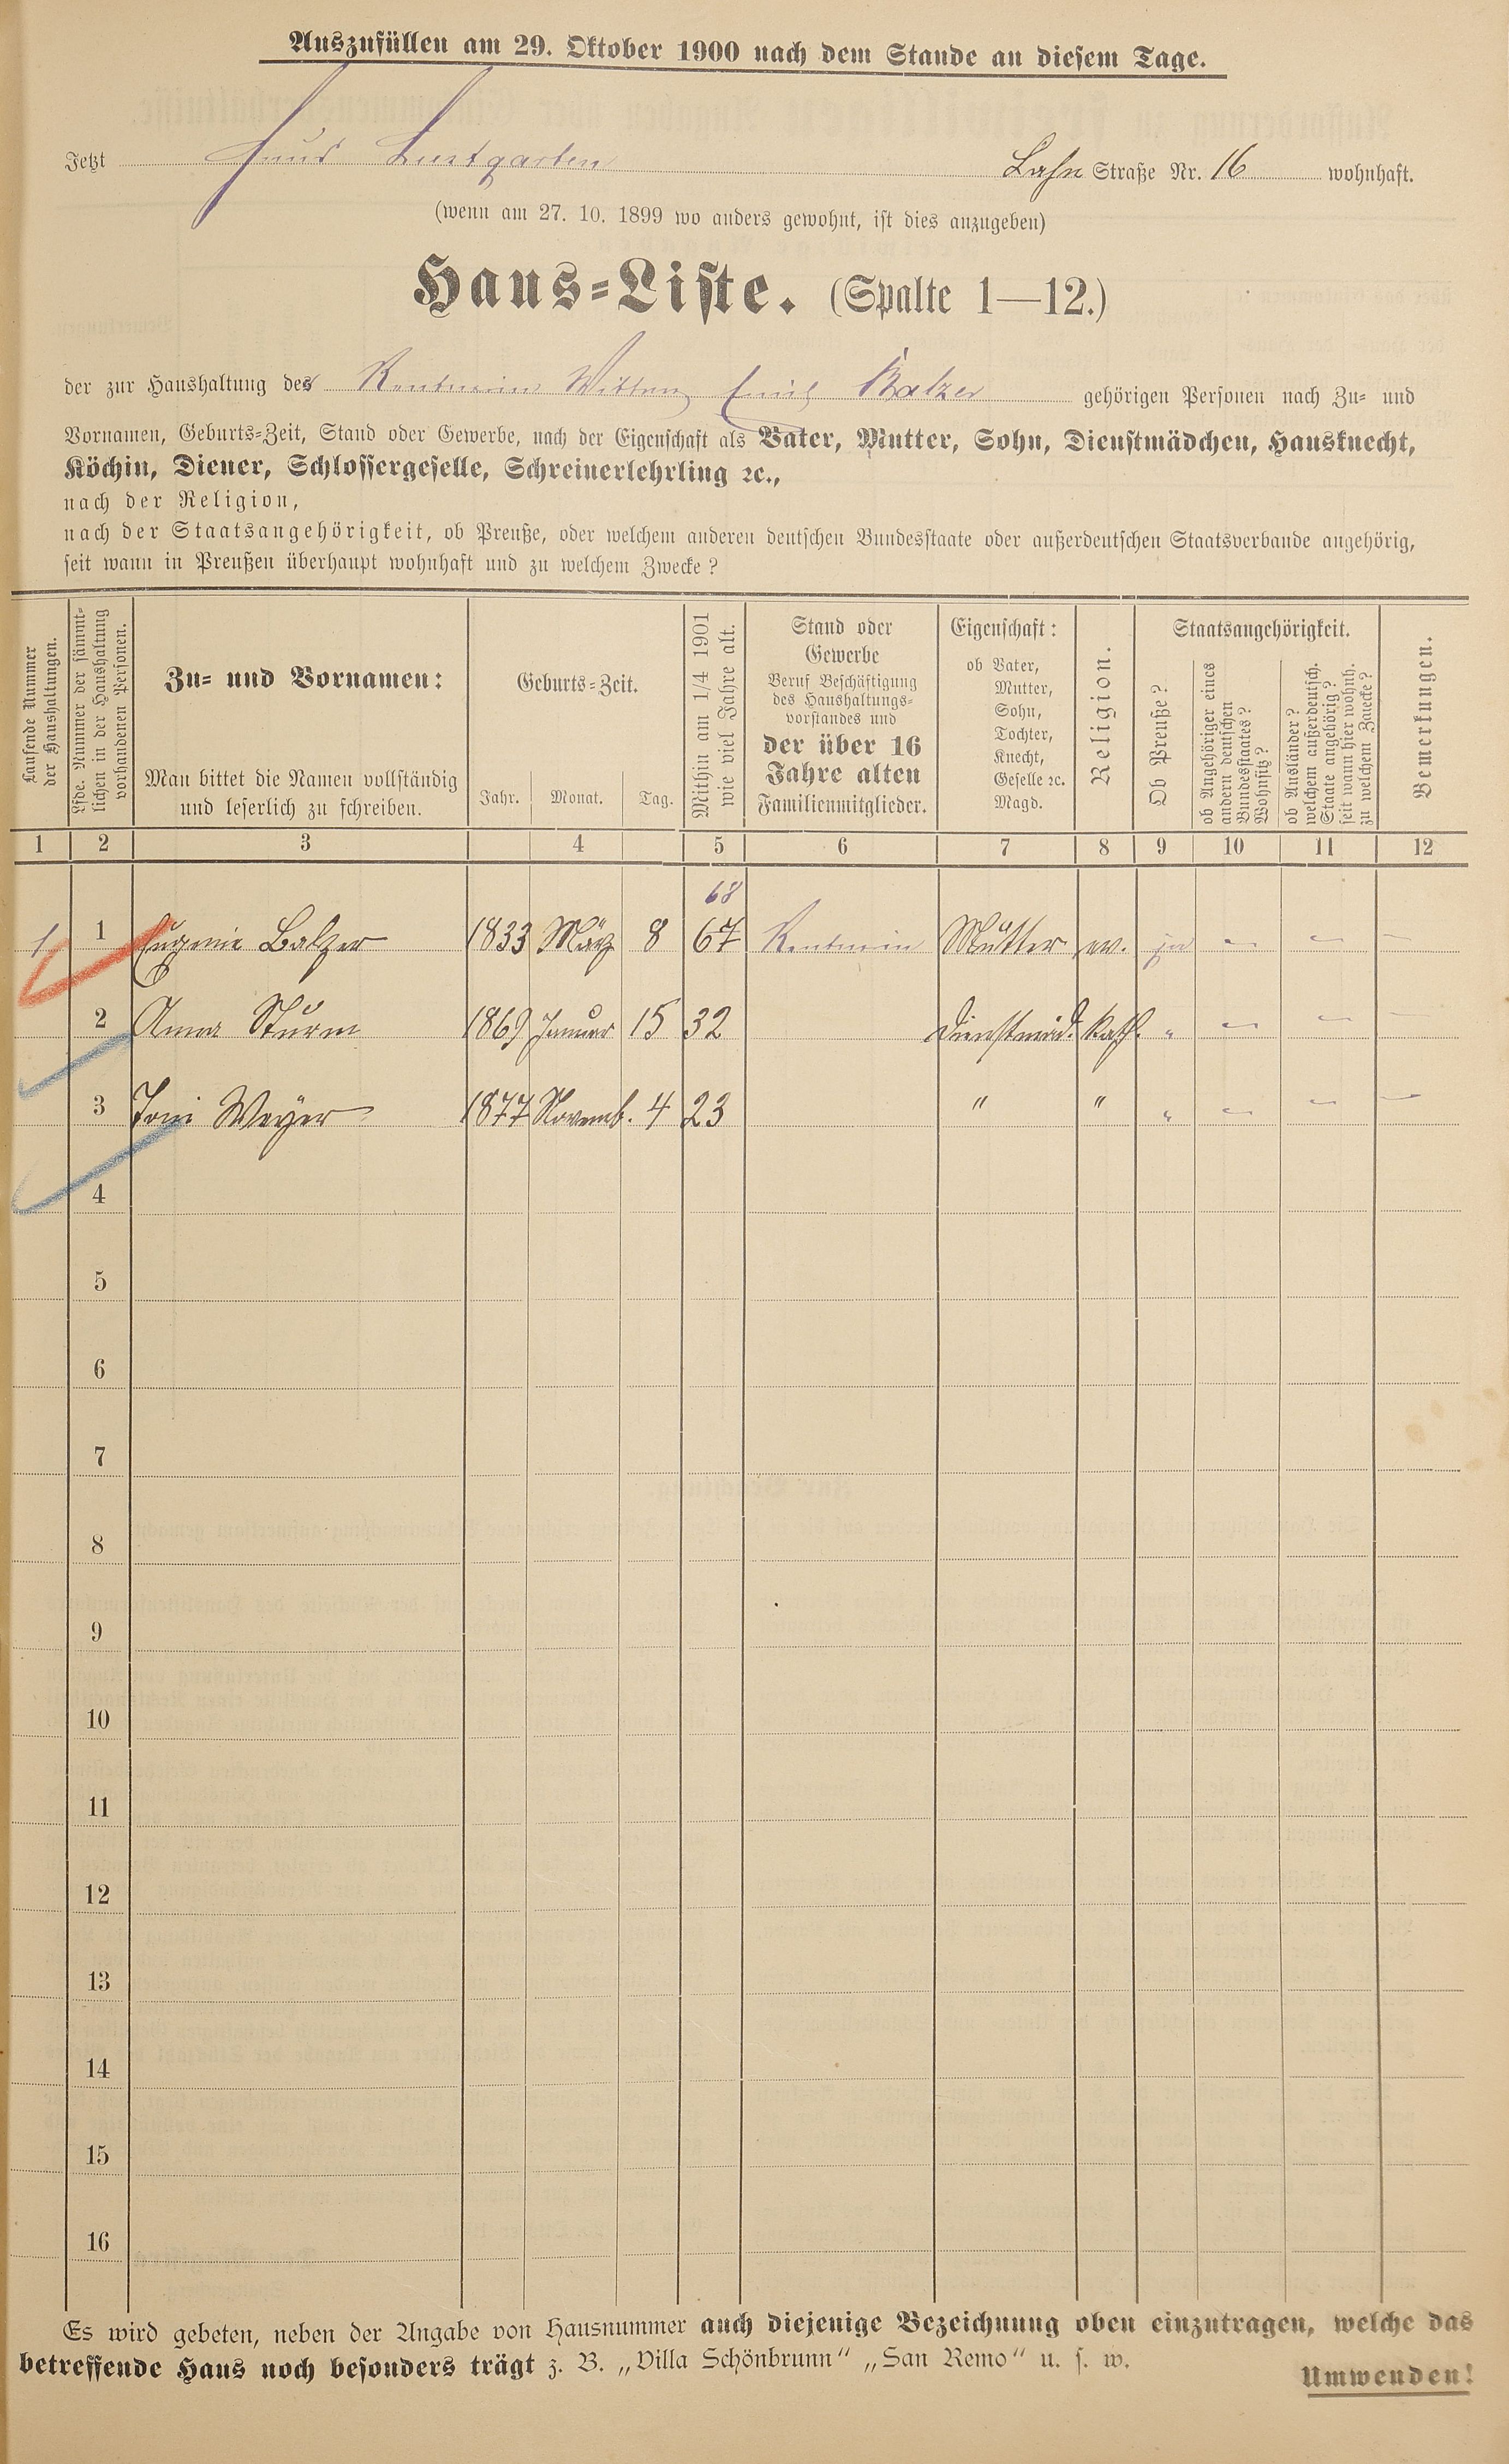 Auszufüllen am 29. Oktober 1900 nach dem Stande an diesem Tage.
Jetzt Haus Lustgarten Lahn Straße Nr. 16 wohnhaft.
(wenn am 27. 10. 1899 wo anders gewohnt, ist dies anzugeben)
Haus-Liste. (Spalte 1—12.)
der zur Haushaltung des Rentnerin Wittwe Emil Balzer gehörigen Personen nach Zu- und
Vornamen, Geburts-Zeit, Stand oder Gewerbe, nach der Eigenschaft als Vater, Mutter, Sohn, Dienstmädchen, Hausknecht,
Köchin, Diener, Schlossergeselle, Schreinerlehrling ꝛc.,
nach der Religion,
nach der Staatsangehörigkeit, ob Preuße, oder welchem anderen deutschen Bundesstaate oder außerdeutschen Staatsverbande angehörig,
seit wann in Preußen überhaupt wohnhaft und zu welchem Zwecke?
Laufende Nummer
der Haushaltungen.
Lfde. Nummer der sämmt-
lichen in der Haushaltung
vorhandenen Personen.
Zu- und Vornamen:
Man bittet die Namen vollständig
und leserlich zu schreiben.
Geburts-Zeit.
Jahr. Monat. Tag.
Mithin am 1/4 1901
wie viel Jahre alt.
Stand oder
Gewerbe
Beruf Beschäftigung
des Haushaltungs-
vorstandes und
der über 16
Jahre alten
Familienmitglieder.
Eigenschaft:
ob Vater,
Mutter,
Sohn,
Tochter,
Knecht,
Geselle ꝛc.
Magd.
Religion.
Staatsangehörigkeit.
Ob Preuße?
ob Angehöriger eines
andern deutschen
Bundesstaates?
Wohnsitz?
ob Ausländer?
welchem außerdeutsch.
Staate angehörig?
seit wann hier wohnh.
zu welchem Zwecke?
Bemerkungen.
1 2 3 4 5 6 7 8 9 10 11 12
68
1 1 Eugenie Balzer 1833 März 8 67 Rentnerin Mutter ev. ja – – –
2 Anna Sturm 1869 Januar 15 32 Dienstmäd. Kath. " – – –
3 Toni Weyer 1877 Novemb. 4 23 " " " – – –
4
5
6
7
8
9
10
11
12
13
14
15
16
Es wird gebeten, neben der Angabe von Hausnummer auch diejenige Bezeichnung oben einzutragen, welche das
betreffende Haus noch besonders trägt z. B. „Villa Schönbrunn“ „San Remo“ u. s. w.
Umwenden!